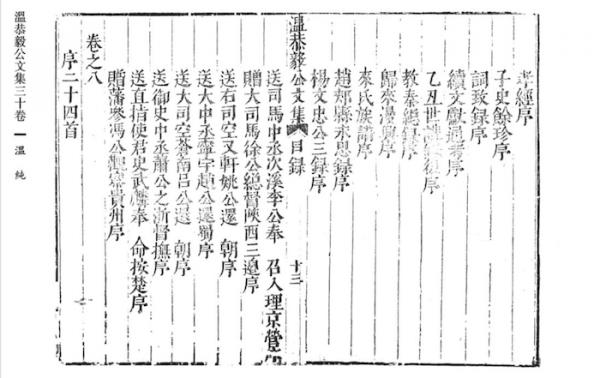 孝經序
子史餘珍序
詞致錄序
續文獻通考序
乙丑世講序
教秦總錄序
歸來漫興序
來氏族譜序
永思錄序
楊文忠公三錄序
溫恭毅公文集 目錄 十三
送司馬中丞次溪李公奉 召入理京營
贈大司馬徐公總督陝西三邊序
送右司空又軒姚公還 朝序
送大中丞霽宇趙公還蜀序
送大司空蒼南呂公還 朝序
送御史中丞蕭公之浙督撫序
送直指使君史武麟奉 命按楚序
贈藩參馮公觀察貴州序
卷之八
序二十四首
溫恭毅公文集三十卷 溫純